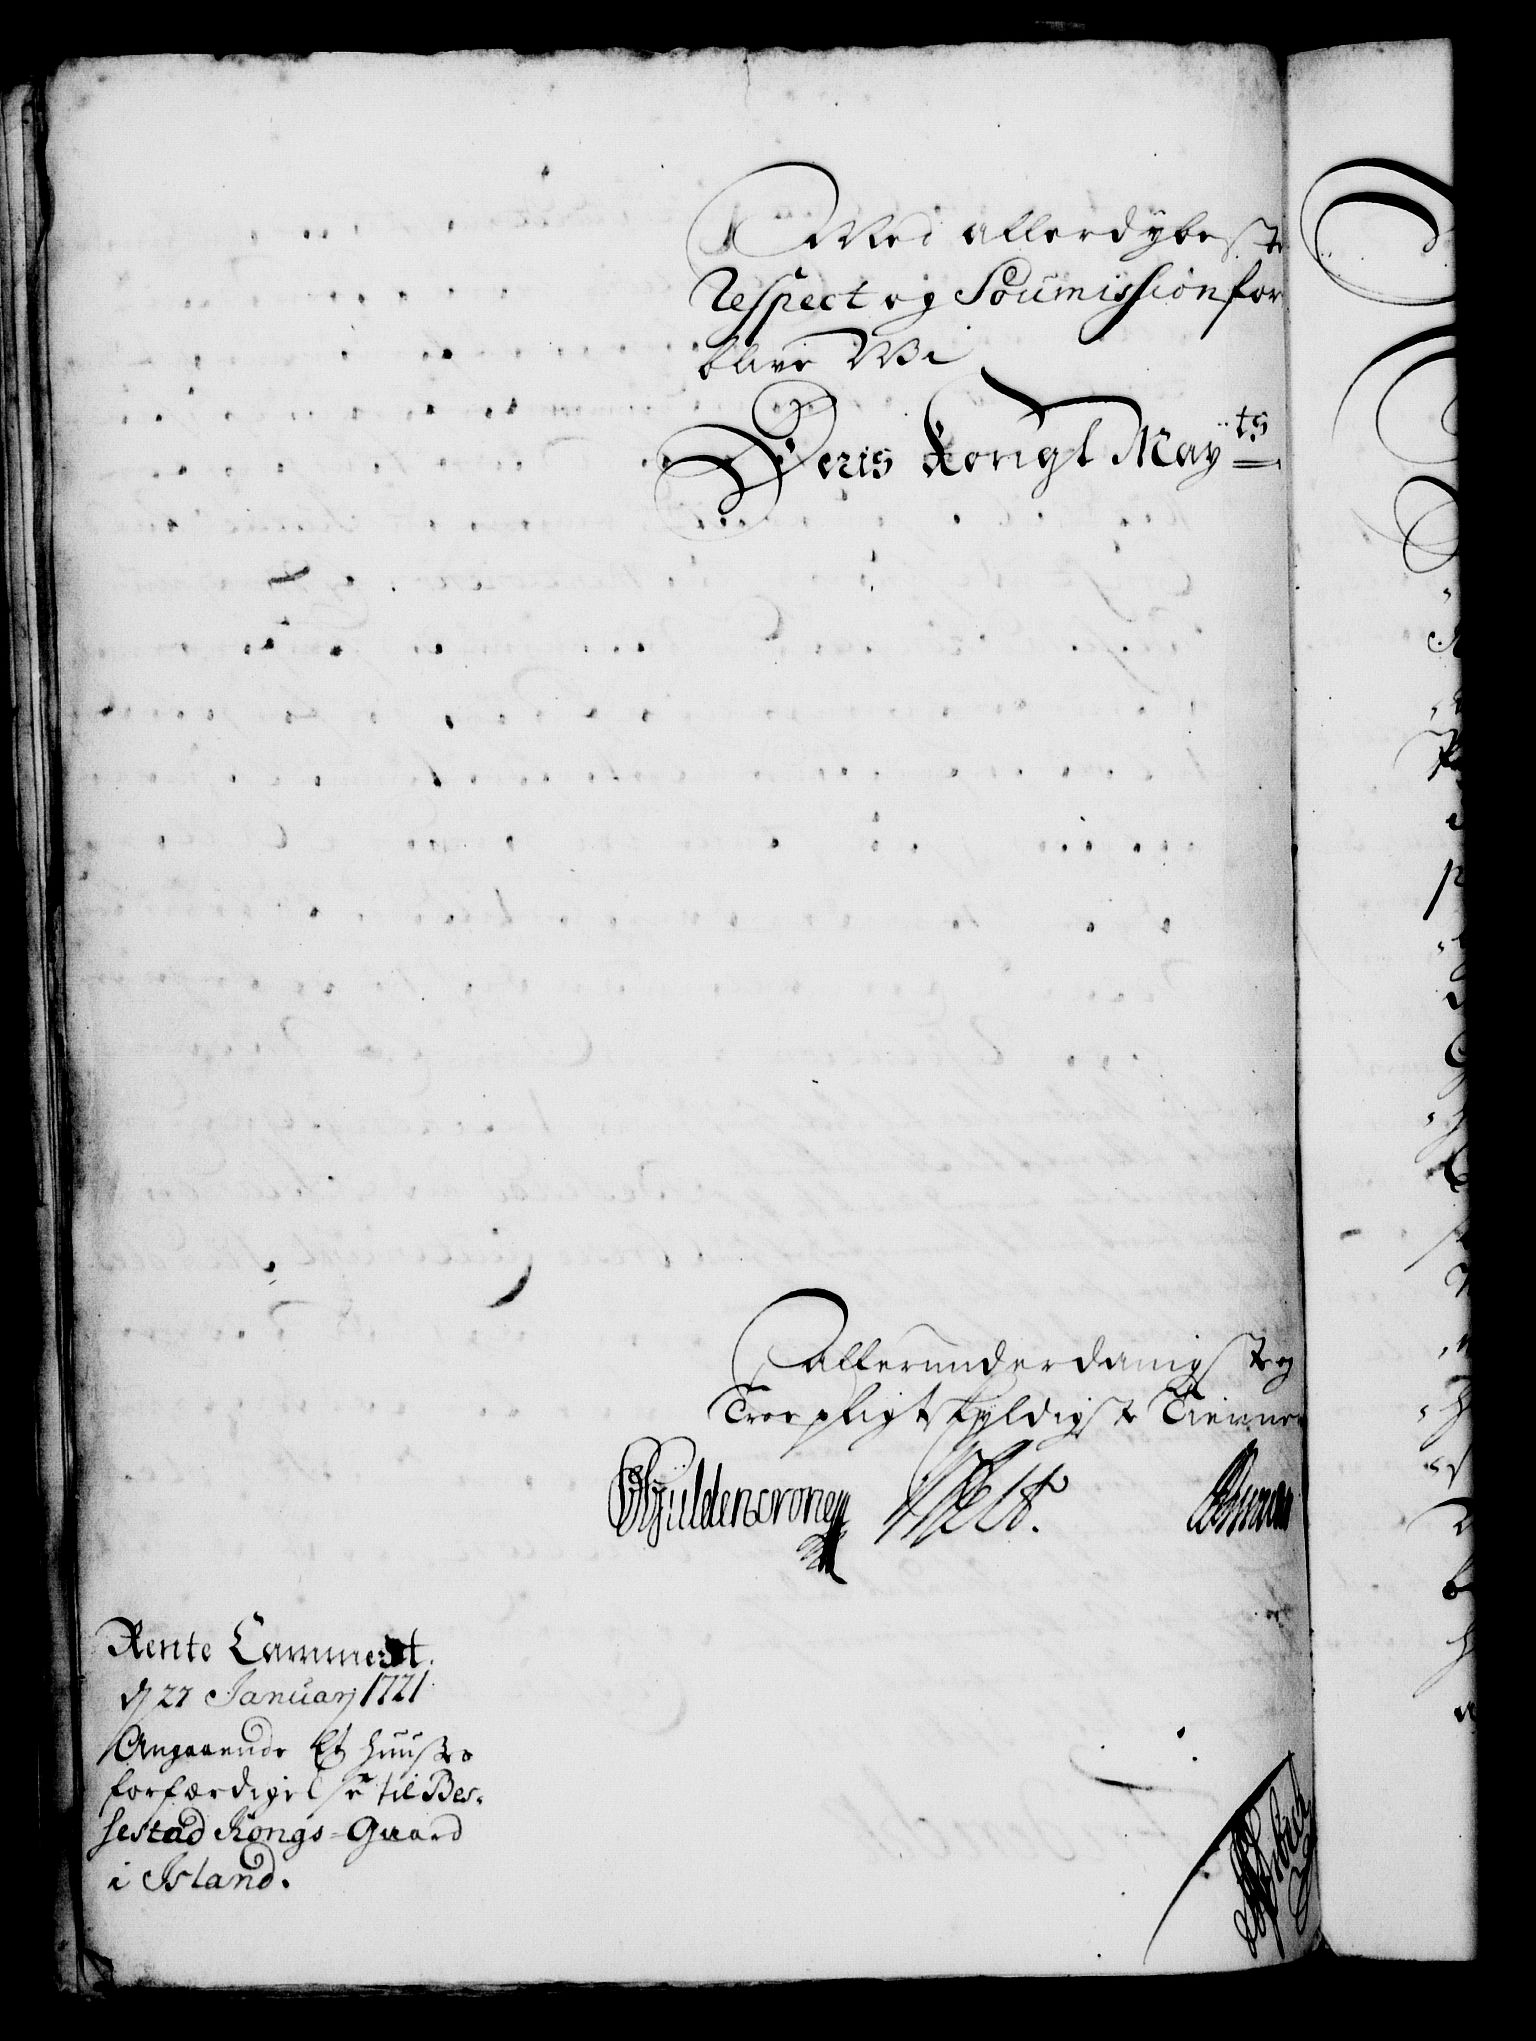 Med allerdÿbeste
Respect og Soumission for
blive Wi
Deris Kongl Maÿts
allerunderdanigste og
Troepligtskyldigste Tienner
Gÿldencrone
Rente Cammeret.
d 27 Januarj 1721
Angaaende Et Huuses
forfærdigelse til Bes-
sestad Kongs-Gaard
i Island.